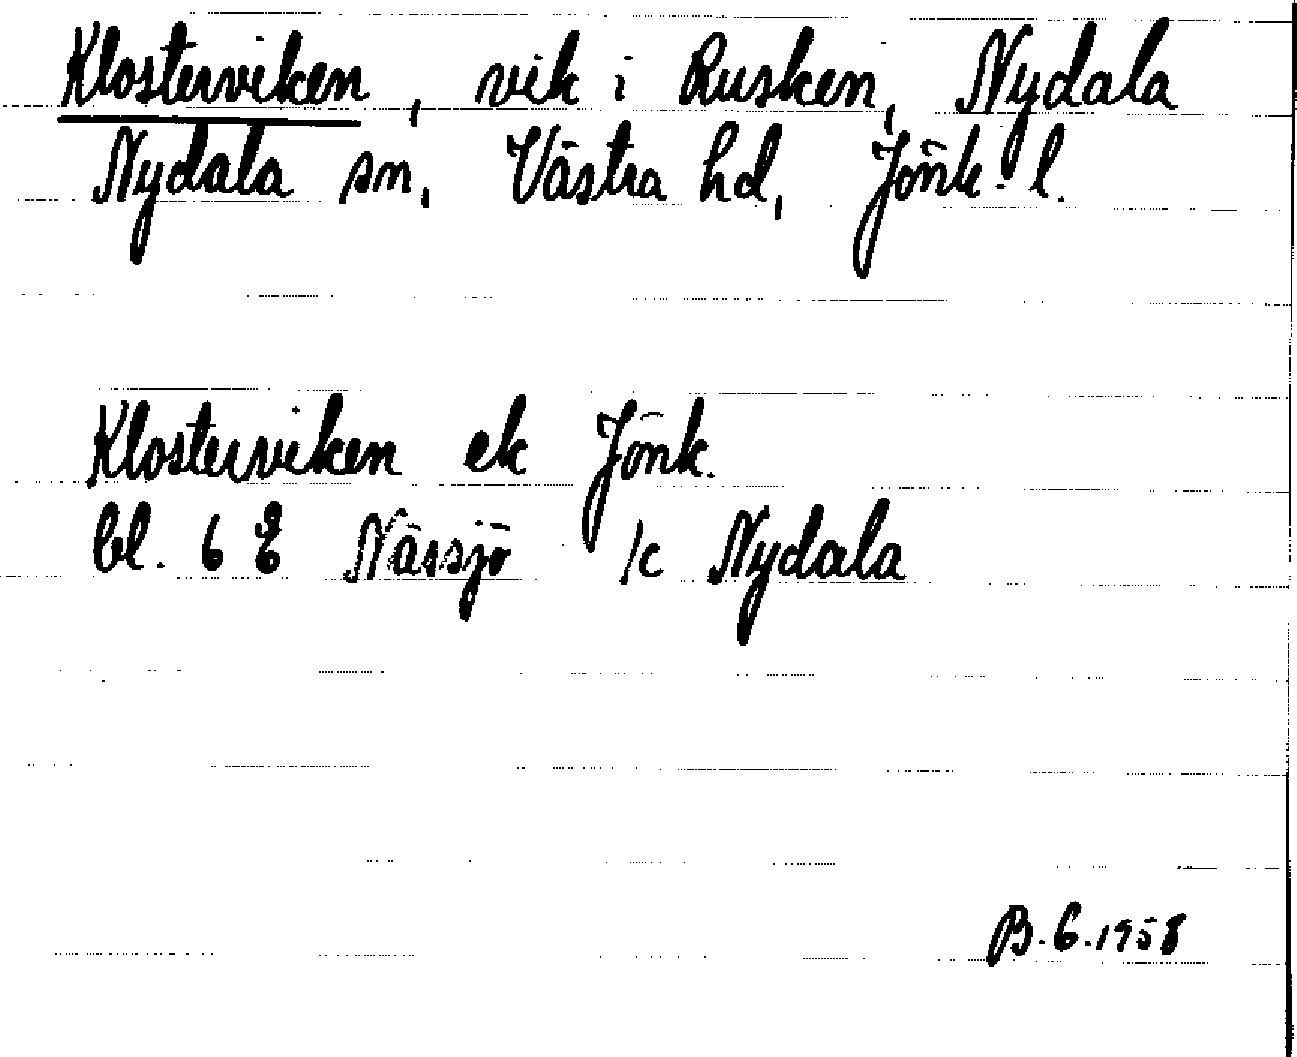 Klosterviken, vik i Rusken, Nydala
Nydala sn, Västra hd, Jönk. l.
Klosterviken ek Jönk.
bl. 6 E Nässjö /c Nydala
B.G.1958